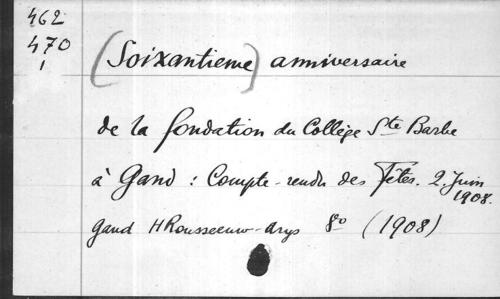 462
470
1
(Soixantieme) anniversaire
de la fondation du Collège Ste Barbe
à Gand : Compte-rendu des Fêtes. 2 Juin
1908.
Gand H Rousseeuw-Arys 8o (1908)